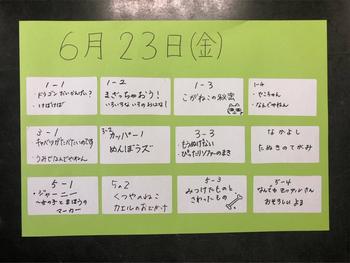 6月23日(金)
1-1
・ドラゴンだいかんげい?
・けばけば
1-2
まざっちゃおう!
いろいろないろのおはなし
1-3
こがねこの秘密
1-4
・やこちゃん
・なんでやねん
3-1
キャベツがたべたいのです
うみでなんでやねん
3-2
カッパー1
めんぼうズ
3-3
・もうぬげない
・ぴったりソファーのまき
なかよし
たぬきのてがみ
5-1
・ジャーニー
〜女の子とまほうの
マーカー
5の2
くつやのねこ
カエルのおでかけ
5-3
みつけたものと
さわったもの
5-4
なんでも
おそろしいよる